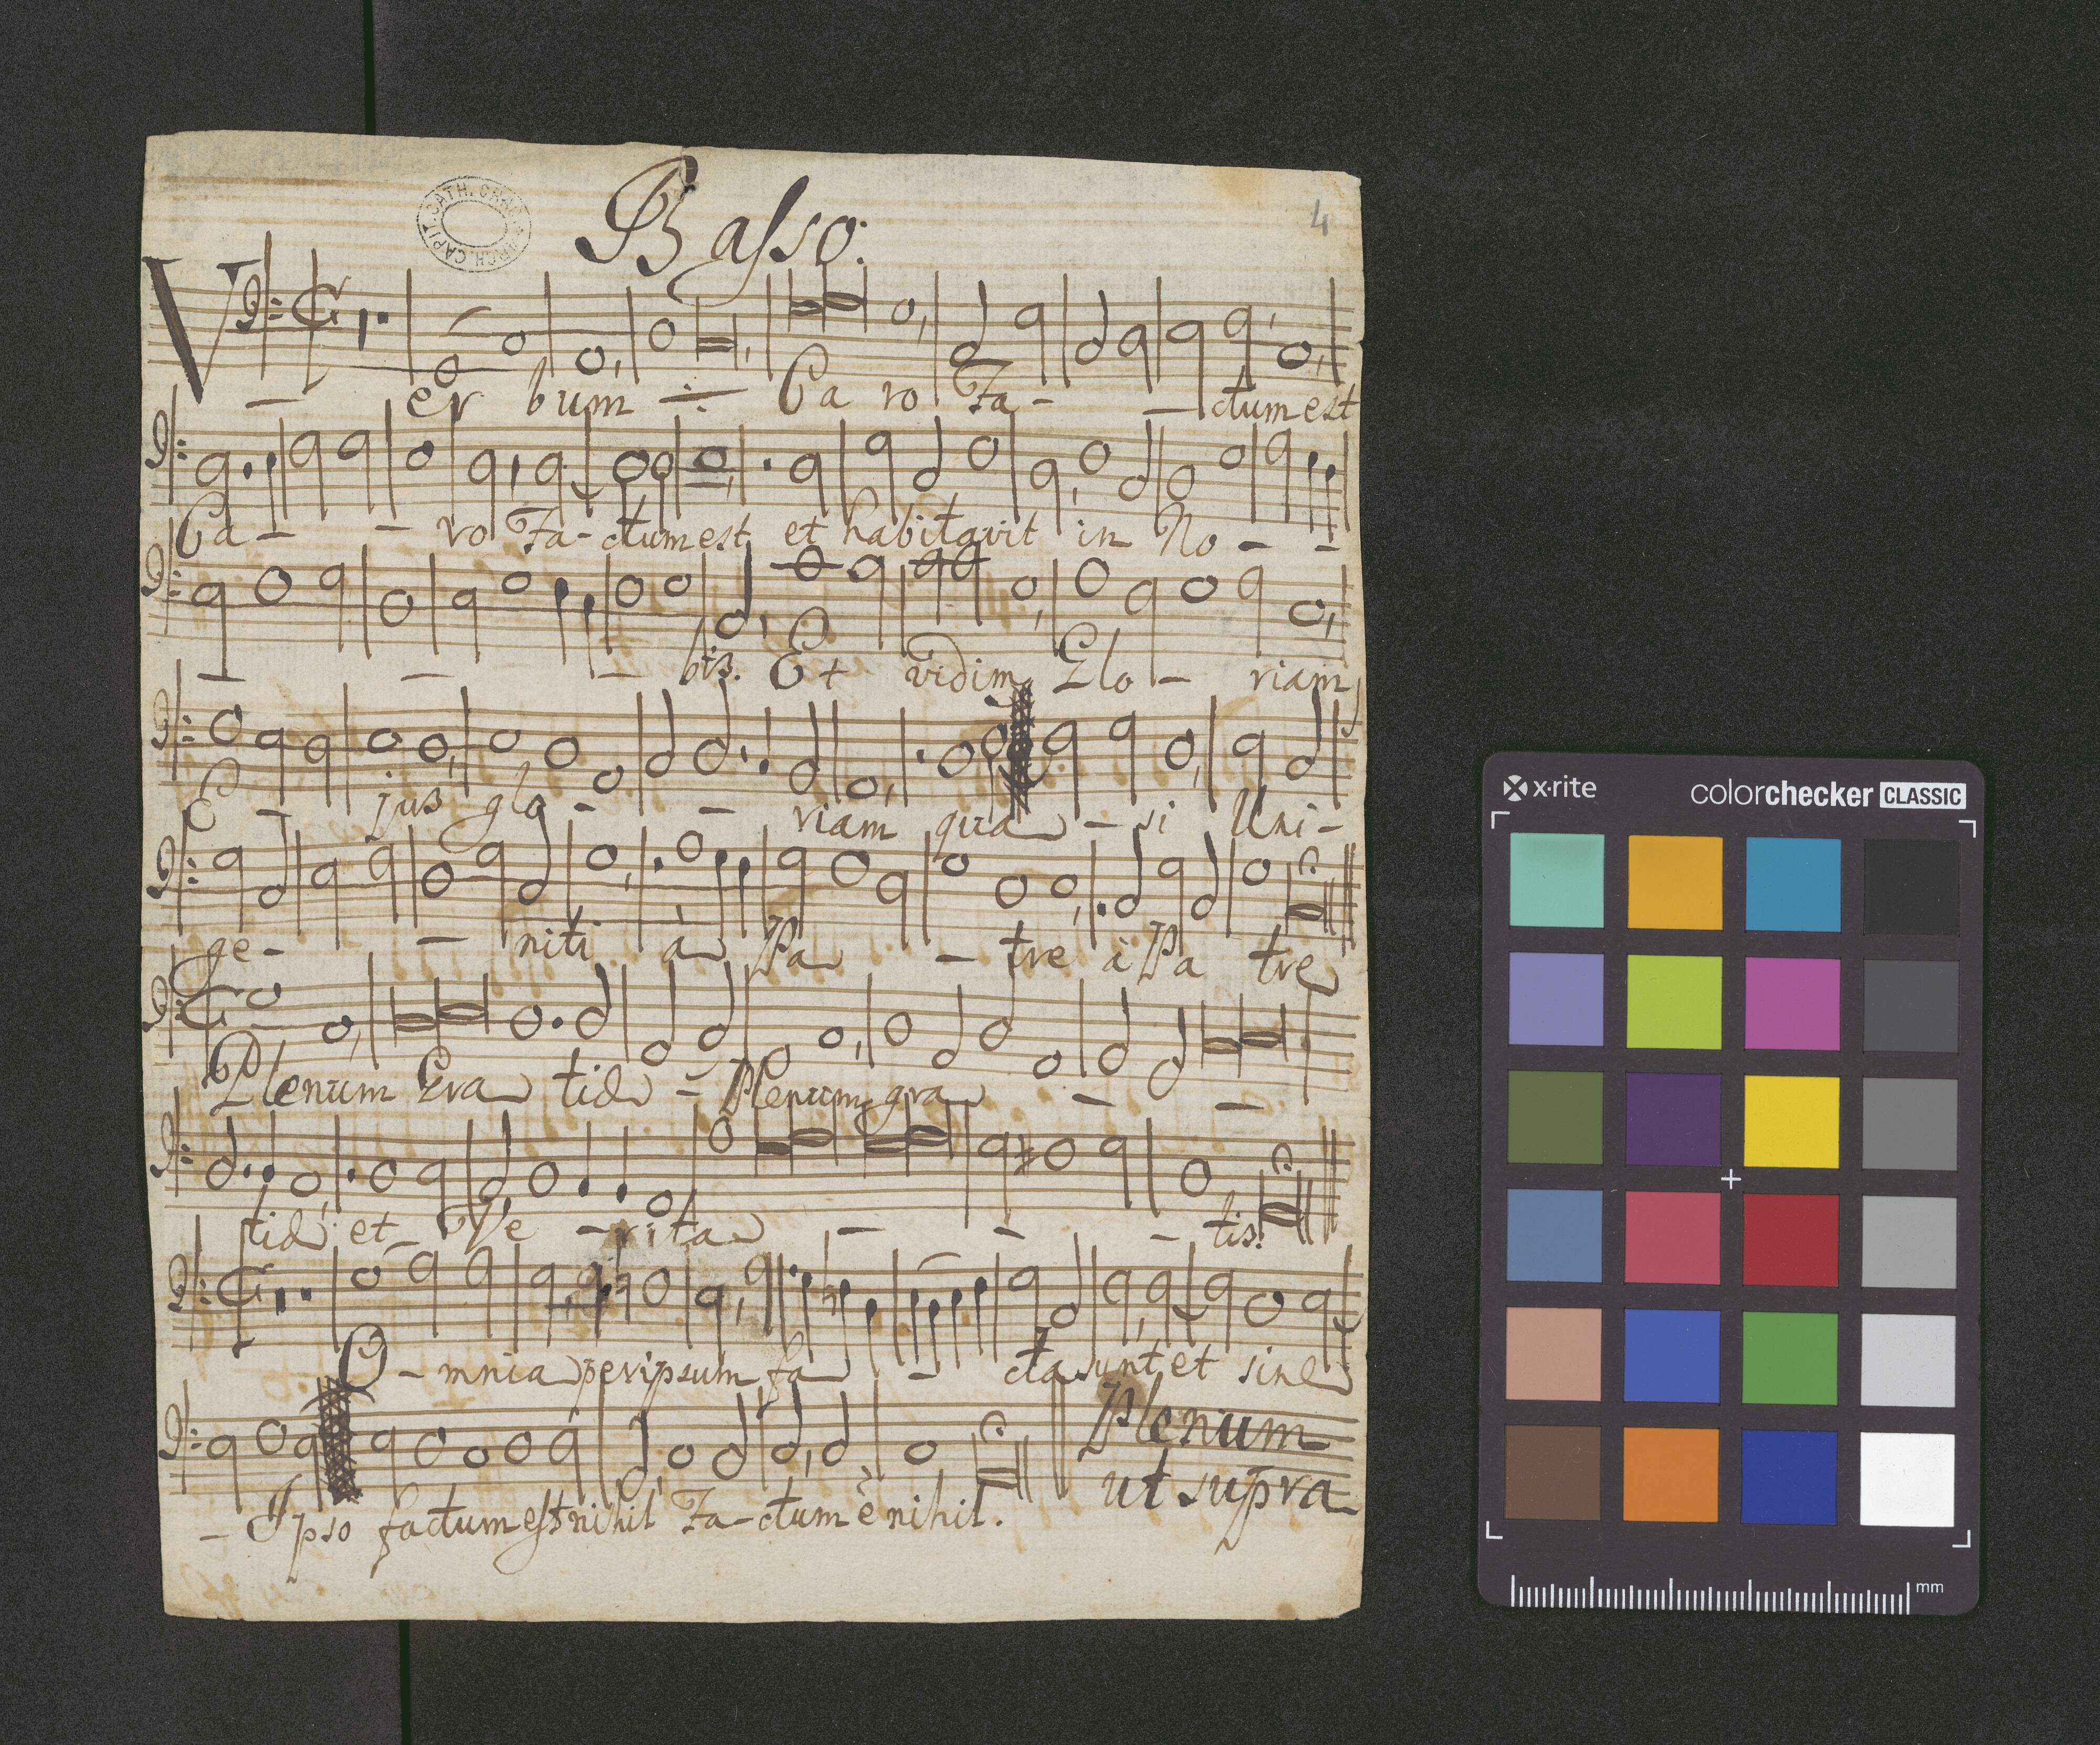 Basso.
4
ARCH. CAPIT. CATH. CRAC.
V - er bum ÷ Caro Fa - - ctum est
Ca - - ro Fa - ctum est et habitavit in No - -
- - - bis. Et vidim9 Glo - riam
C - jus glo - - riam qua - si Uni -
ge - - niti à Pa - tre à Pa tre
Plenum Gra tiæ - Plenum gra - -
tiæ et Ve - rita - - - tis.
O - mnia per ipsum fa - cta sunt et sine
- Ipso factum est nihil Fa - ctum è nihil.
Plenum
ut supra
x-rite
colorchecker CLASSIC
mm